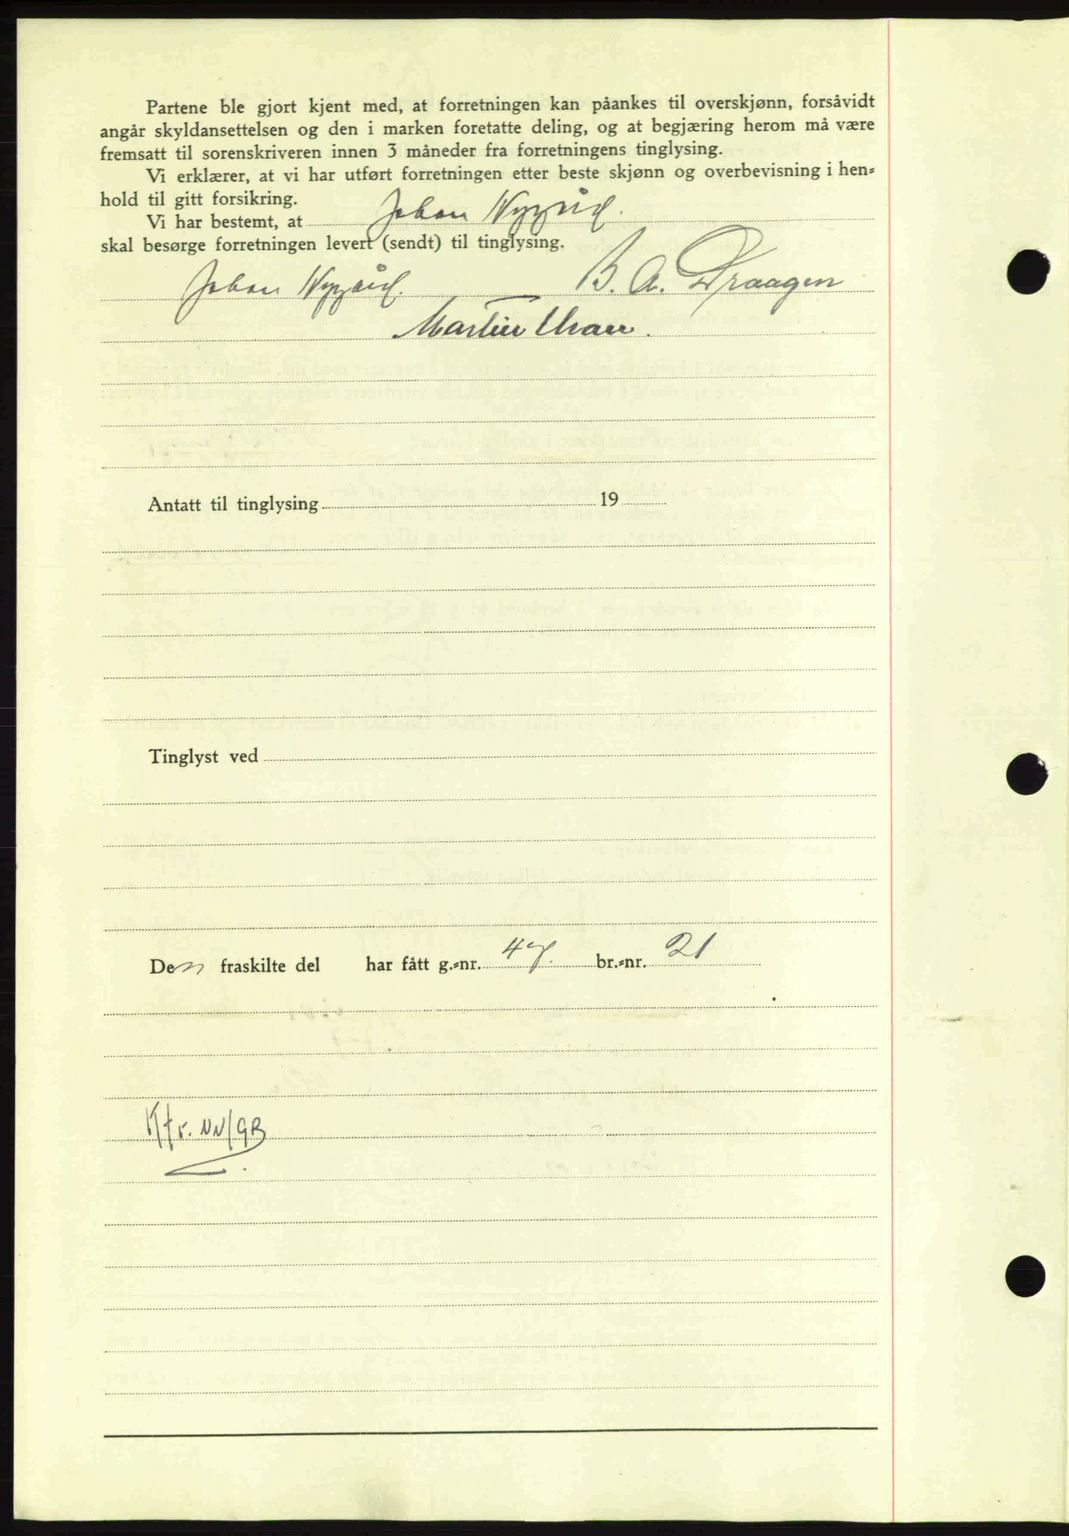 Partene ble gjort kjent med, at forretningen kan påankes til overskjønn, forsåvidt
angår skyldansettelsen og den i marken foretatte deling, og at begjæring herom må være
fremsatt til sorenskriveren innen 3 måneder fra forretningens tinglysing.
Vi erklærer, at vi har utført forretningen etter beste skjønn og overbevisning i hen-
hold til gitt forsikring.
Vi har bestemt, at Johan Nygård.
skal besørge forretningen levert (sendt) til tinglysing.
Johan Nygård. B. A. Draagen
Martin
Antatt til tinglysing 19
Tinglyst ved
Den fraskilte del har fått g.-nr. 47. br.-nr. 21
Kfr. NN/GB